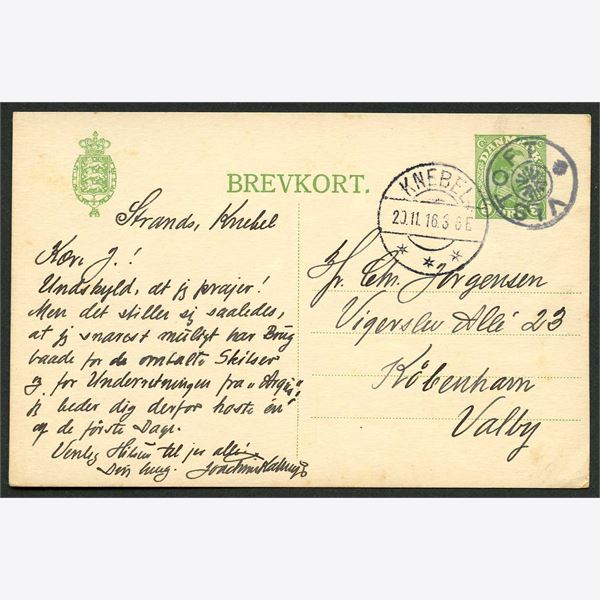 BREVKORT.
DANMARK
KNEBEL
20.11.16.3-6E
VISTOFT
Strands, Knebel
Kære J.!
Undskyld, at jeg prajer!
Men det stiller sig saaledes,
at jeg snarest muligt har Brug
baade for de omtalte Skitser
og for Underretningen fra "Argus",
jeg beder dig derfor
og de første Dage.
Venlig Hilsen til jer alle
Din
Hr. Chr. Jørgensen
Vigerslev Allé 23
København
Valby